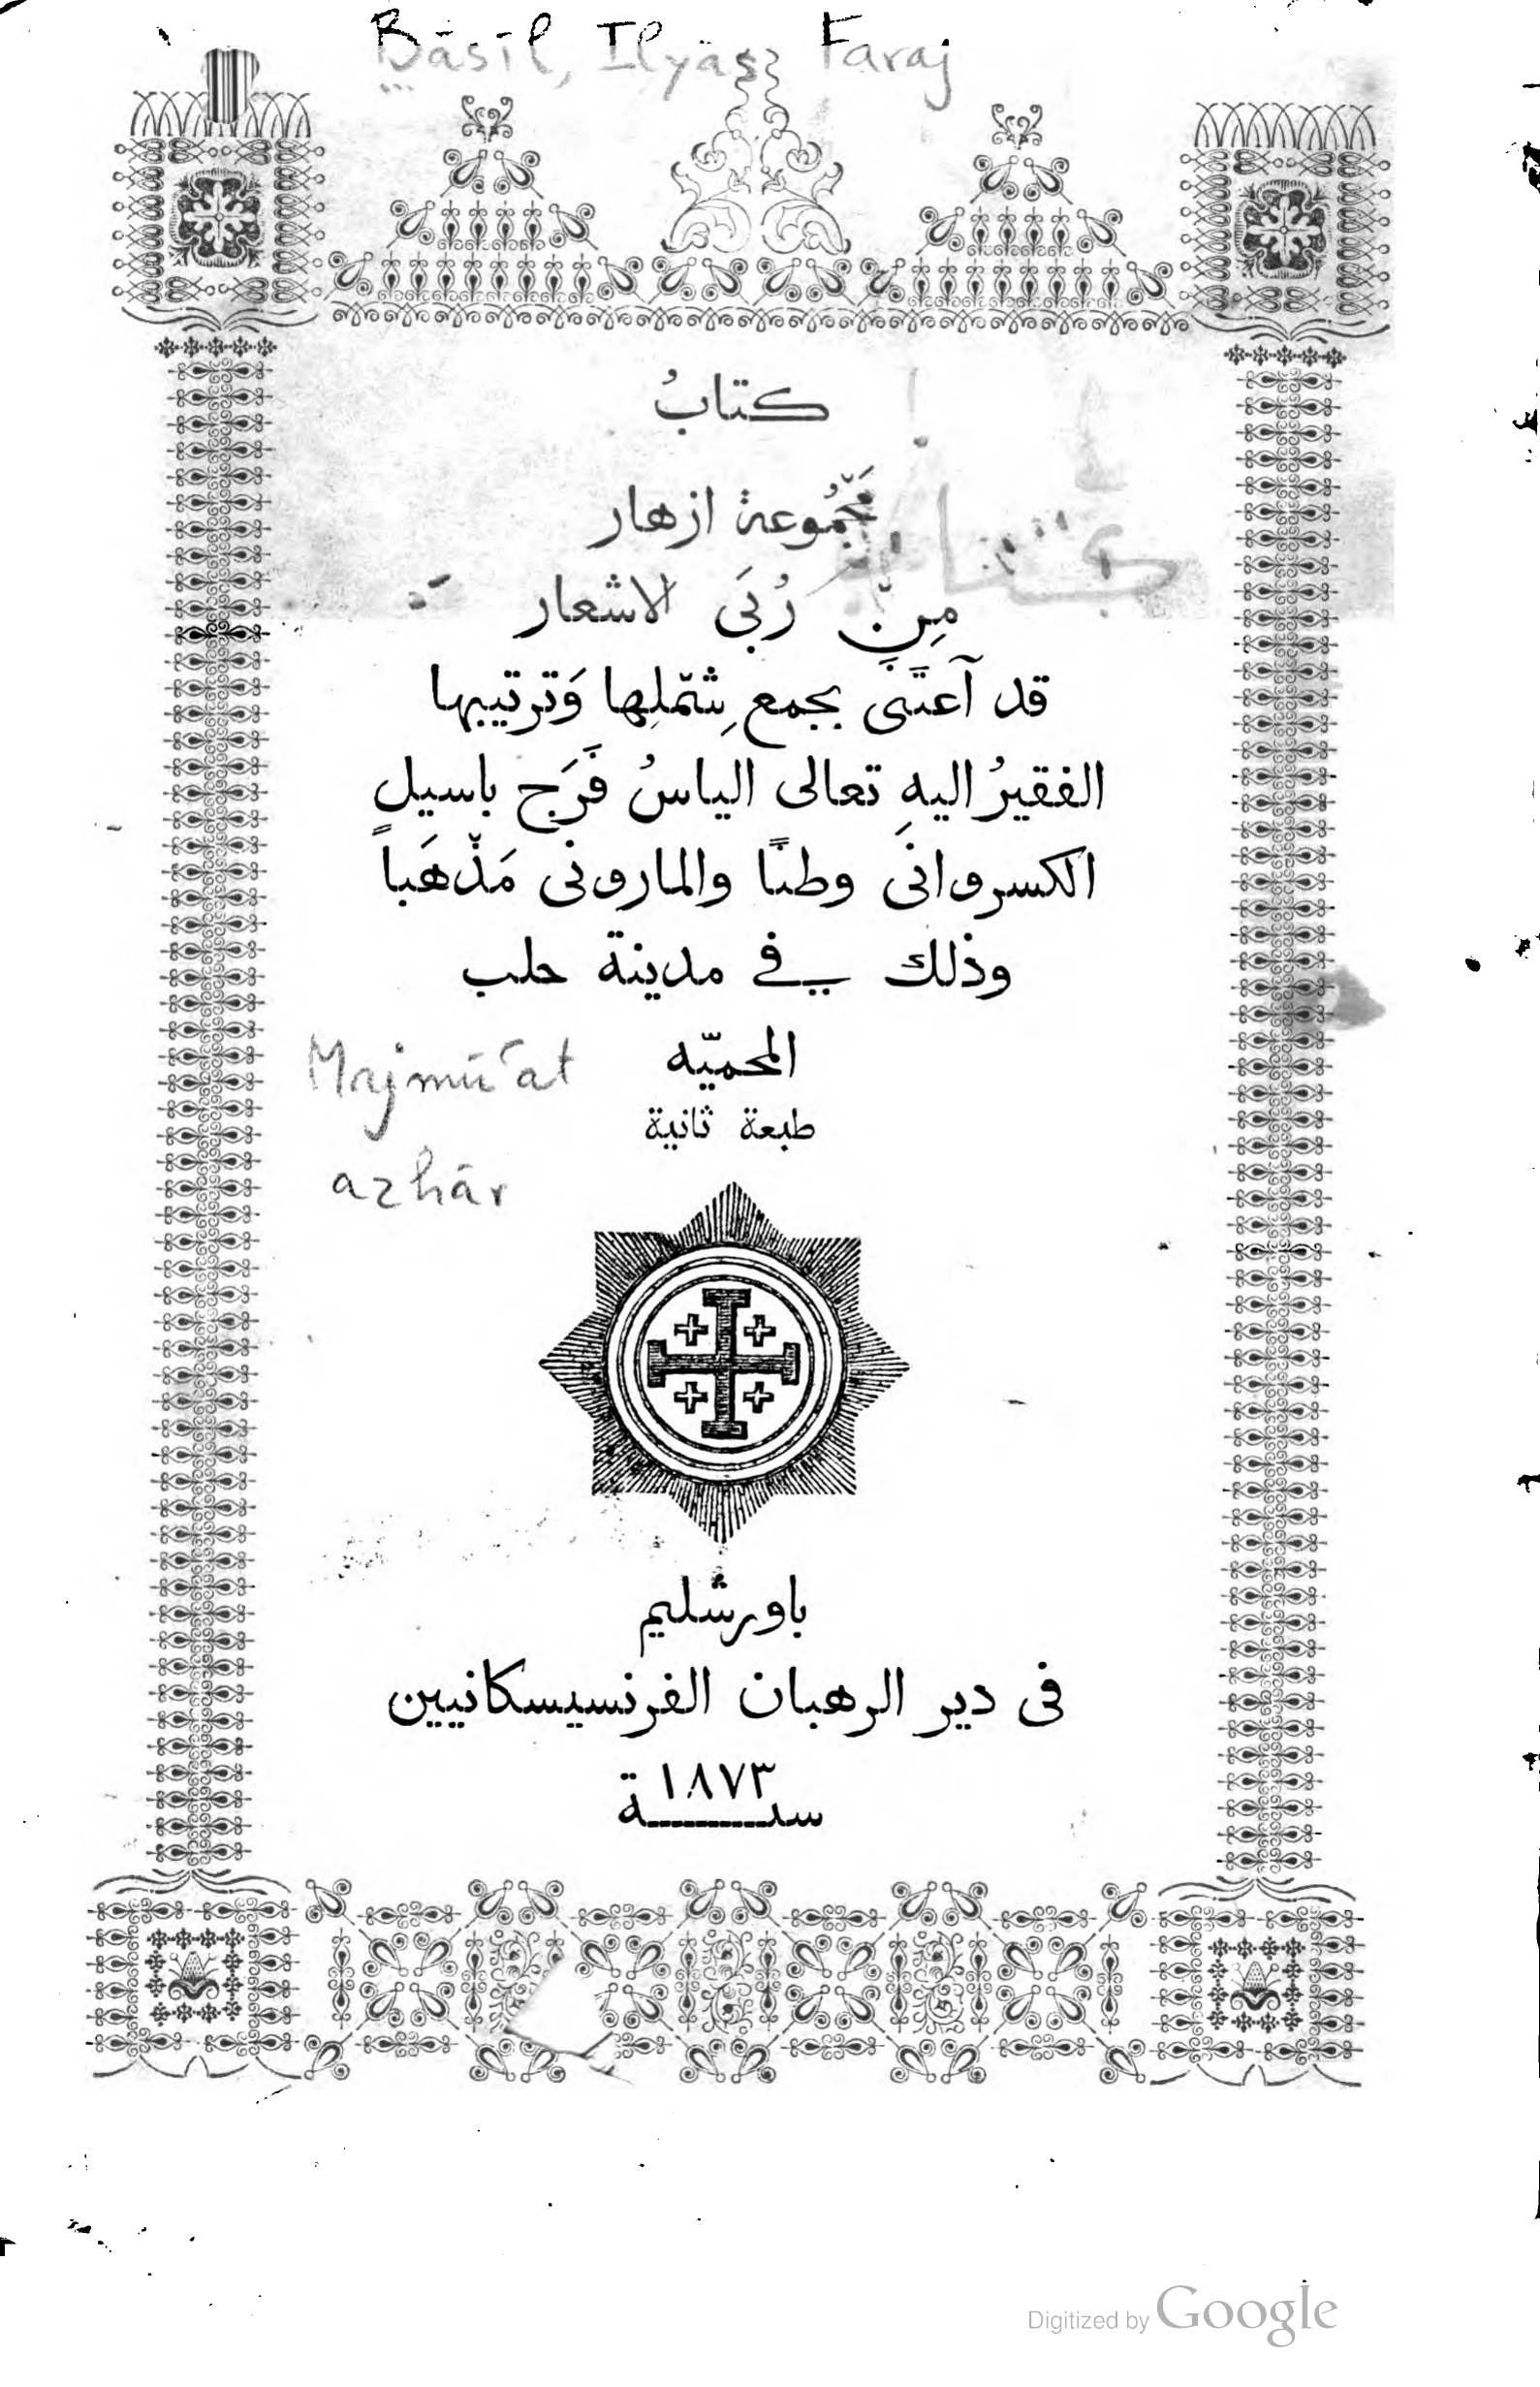 Bāsīl, Ilyās Faraj
كتابُ
مَجْمُوعة ازهار
مِن رُبَى الاشعار
قد آعتَنى بجمع شِمْلِها وَترتيبها
الفقيرُ اليهِ تعالى الياسُ فَرَج باسيل
الكسروانى وطنًا والمارونى مَذْهَباً
وذلك في مدينة حلب
المحميّه
طبعة ثانية
Majmūʿat
azhār
باورشليم
فى دير الرهبان الفرنسيسكانيين
سنة ١٨٧٣
Digitized by Google